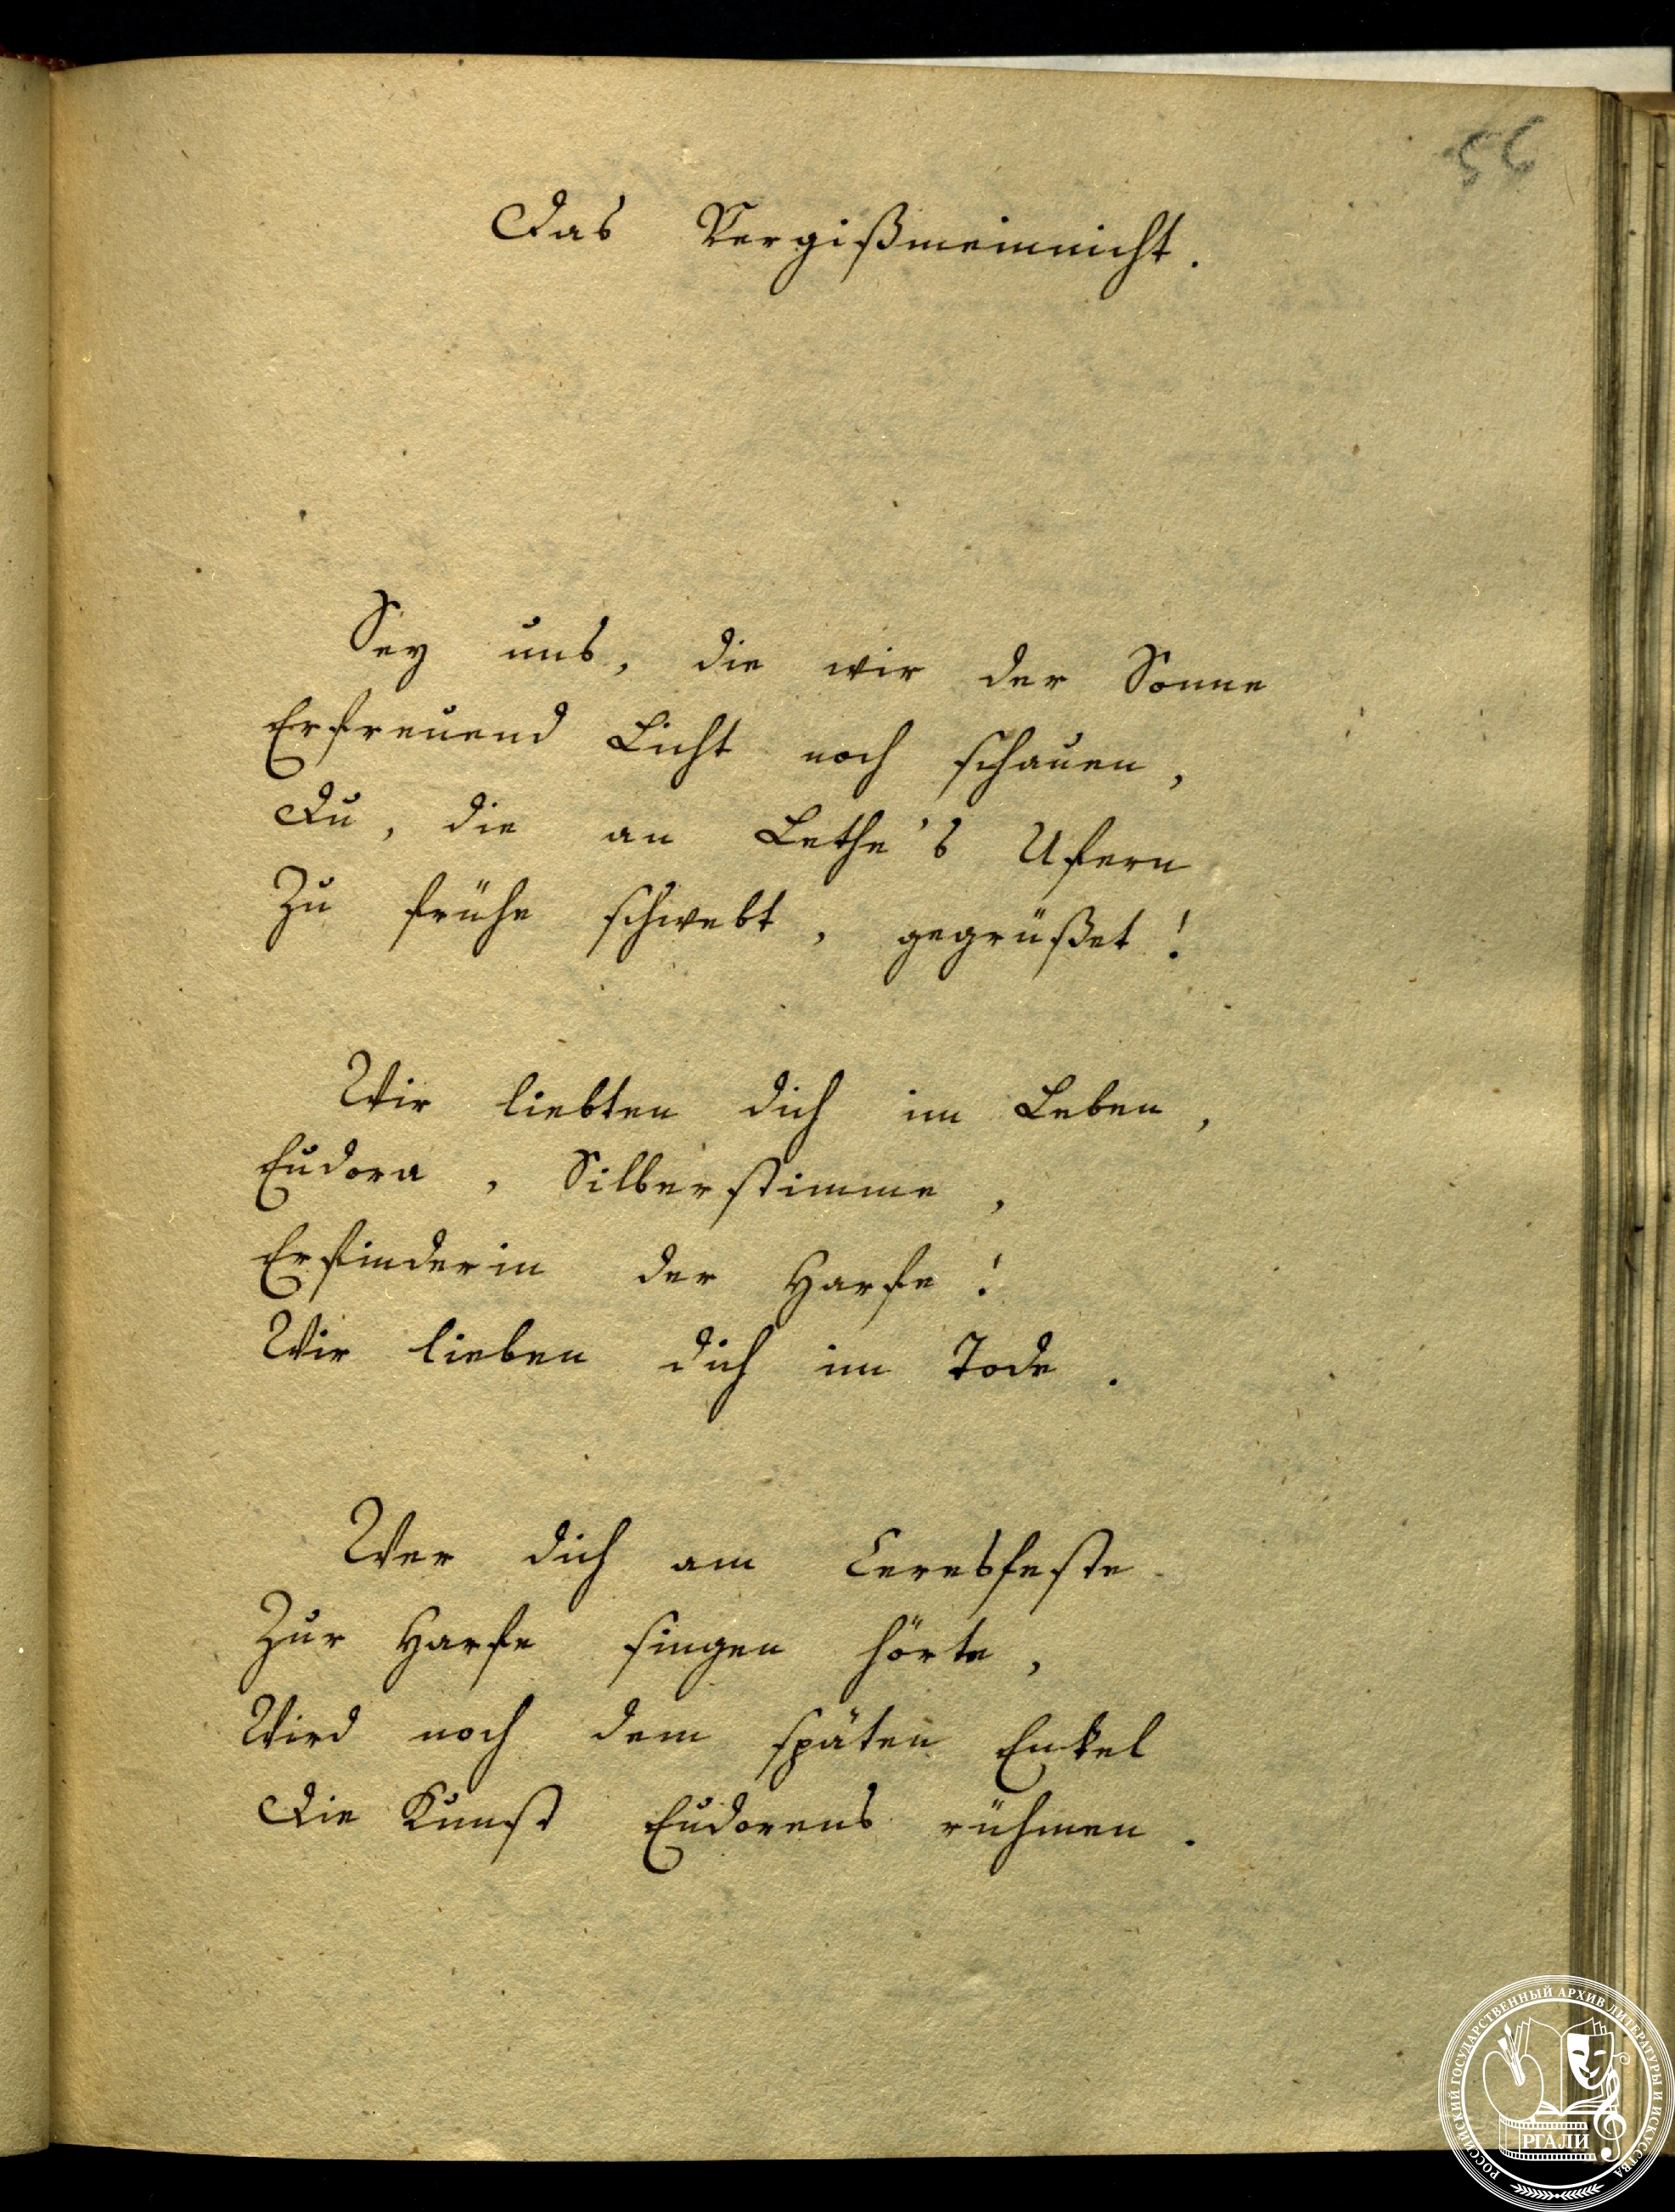 56
Das Vergißmeinnicht.
Sey uns, die wir der Sonne
Erfreuend Licht noch schauen,
Du, die an Lethe's Ufern
Zu frühe schwebt, gegrüßet!
Wir liebten dich im Leben,
Eudora, Silberstimme,
Erfinderin der Harfe!
Wir lieben dich im Tode.
Wer dich am Ceresfeste
Zur Harfe singen hörte,
Wird noch dem späten Enkel
Die Kunst Eudorens rühmen.
РОССИЙСКИЙ ГОСУДАРСТВЕННЫЙ АРХИВ ЛИТЕРАТУРЫ И ИСКУССТВА
РГАЛИ